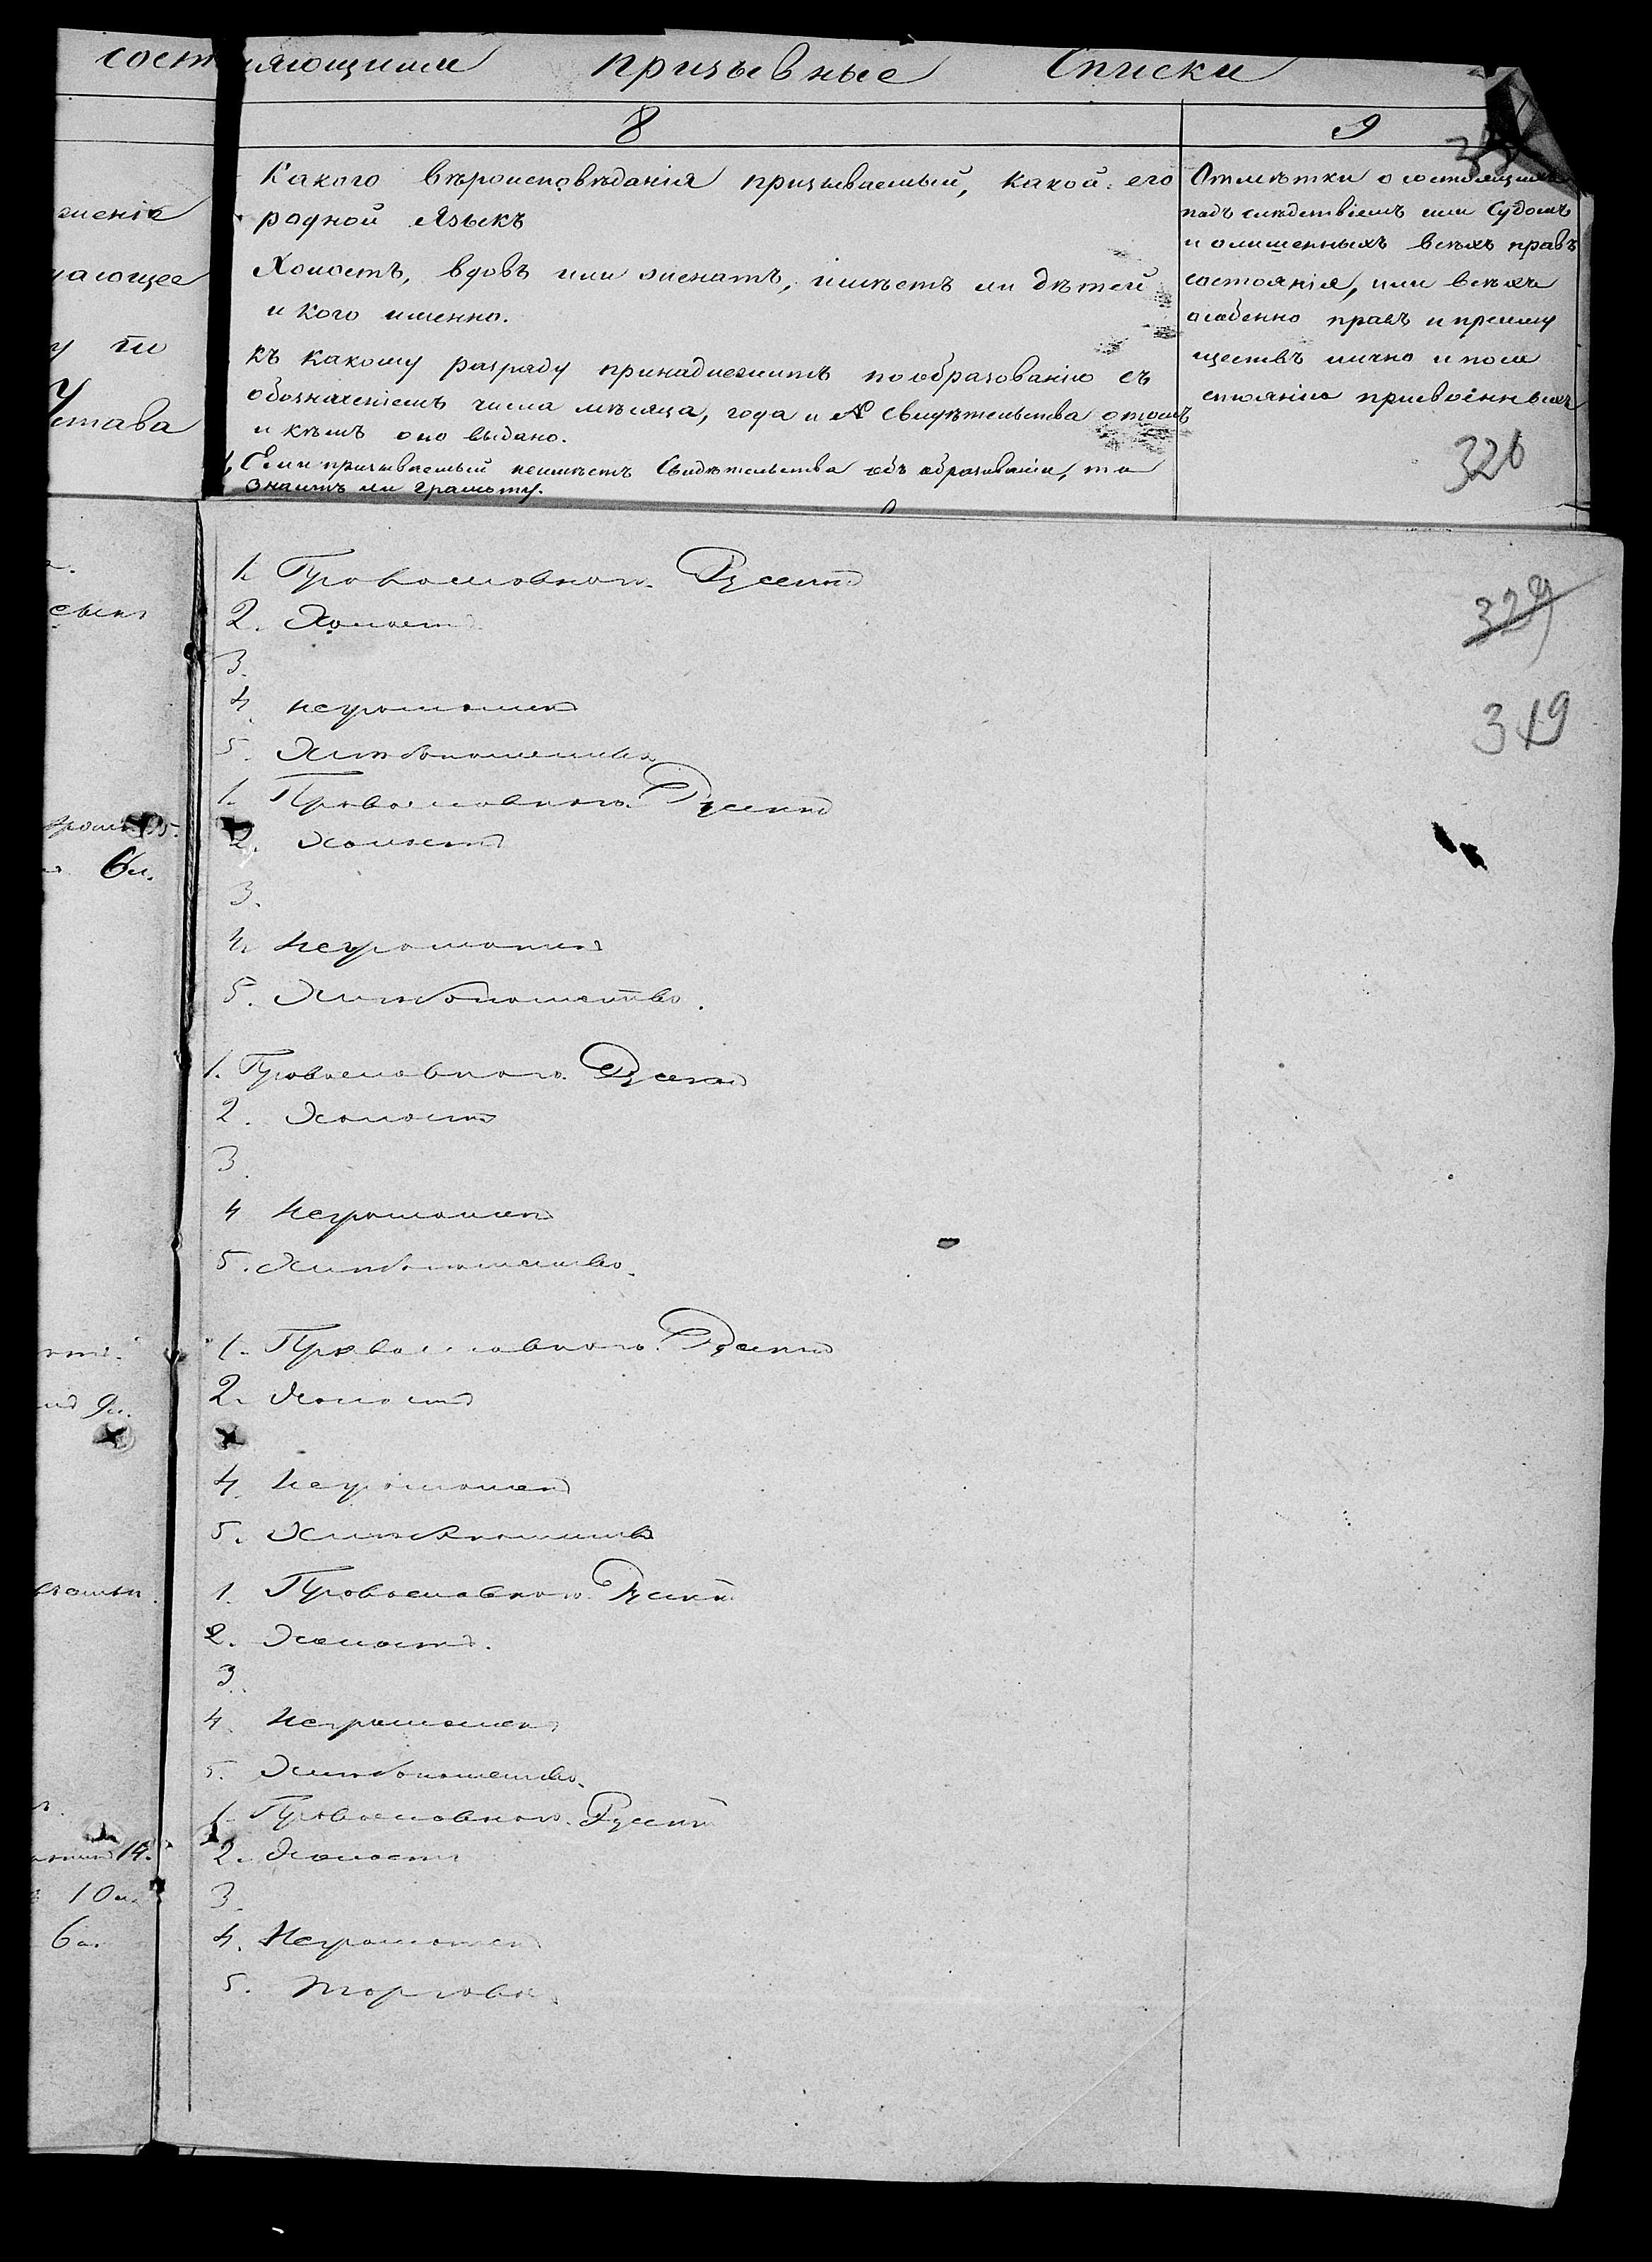 призывные Списки
8
9
Какого вѣроисповѣданія призываемый, какой его
родной языкъ
Холостъ, вдовъ или женатъ, имѣетъ ли дѣтей
и кого именно.
къ какому разряду принадлежитъ по образованію съ
обозначеніемъ числа мѣсяца, года и № свидѣтельства о томъ
и кѣмъ оно выдано.
Если призываемый неимѣетъ Свидѣтельства объ образованіи, то
знаетъ ли грамоту.
Отмѣтки о состоящихъ
подъ слѣдствіемъ или Судомъ
и о лишенныхъ всѣхъ правъ
состоянія, или всѣхъ
особенно правъ и преиму
ществъ лично и по со
стоянію присвоенныхъ
326
329
319
женіе
дающее
у по
Устава
1. Православнаго. Русскій
2. Холостъ
3.
4. неграмотенъ
5. Хлебопашество
1. Православнаго. Русскій
2. Холостъ
3.
4. Неграмотенъ
5. Хлебопашество.
6 л.
1. Православнаго. Русскій
2. Холостъ
3
4 Неграмотенъ
5. Хлебопашество.
1. Православнаго. Русскій
2. Холостъ
9 л.
4. Неграмотенъ
5. Хлебопашество
1. Православнаго. Русскій
2. Холостъ.
3.
4. Неграмотенъ
5. Хлебопашество.
1. Православнаго. Русскій
2. Холостъ
14.
3.
10 л.
4. Неграмотенъ
6 л.
5. торговля.